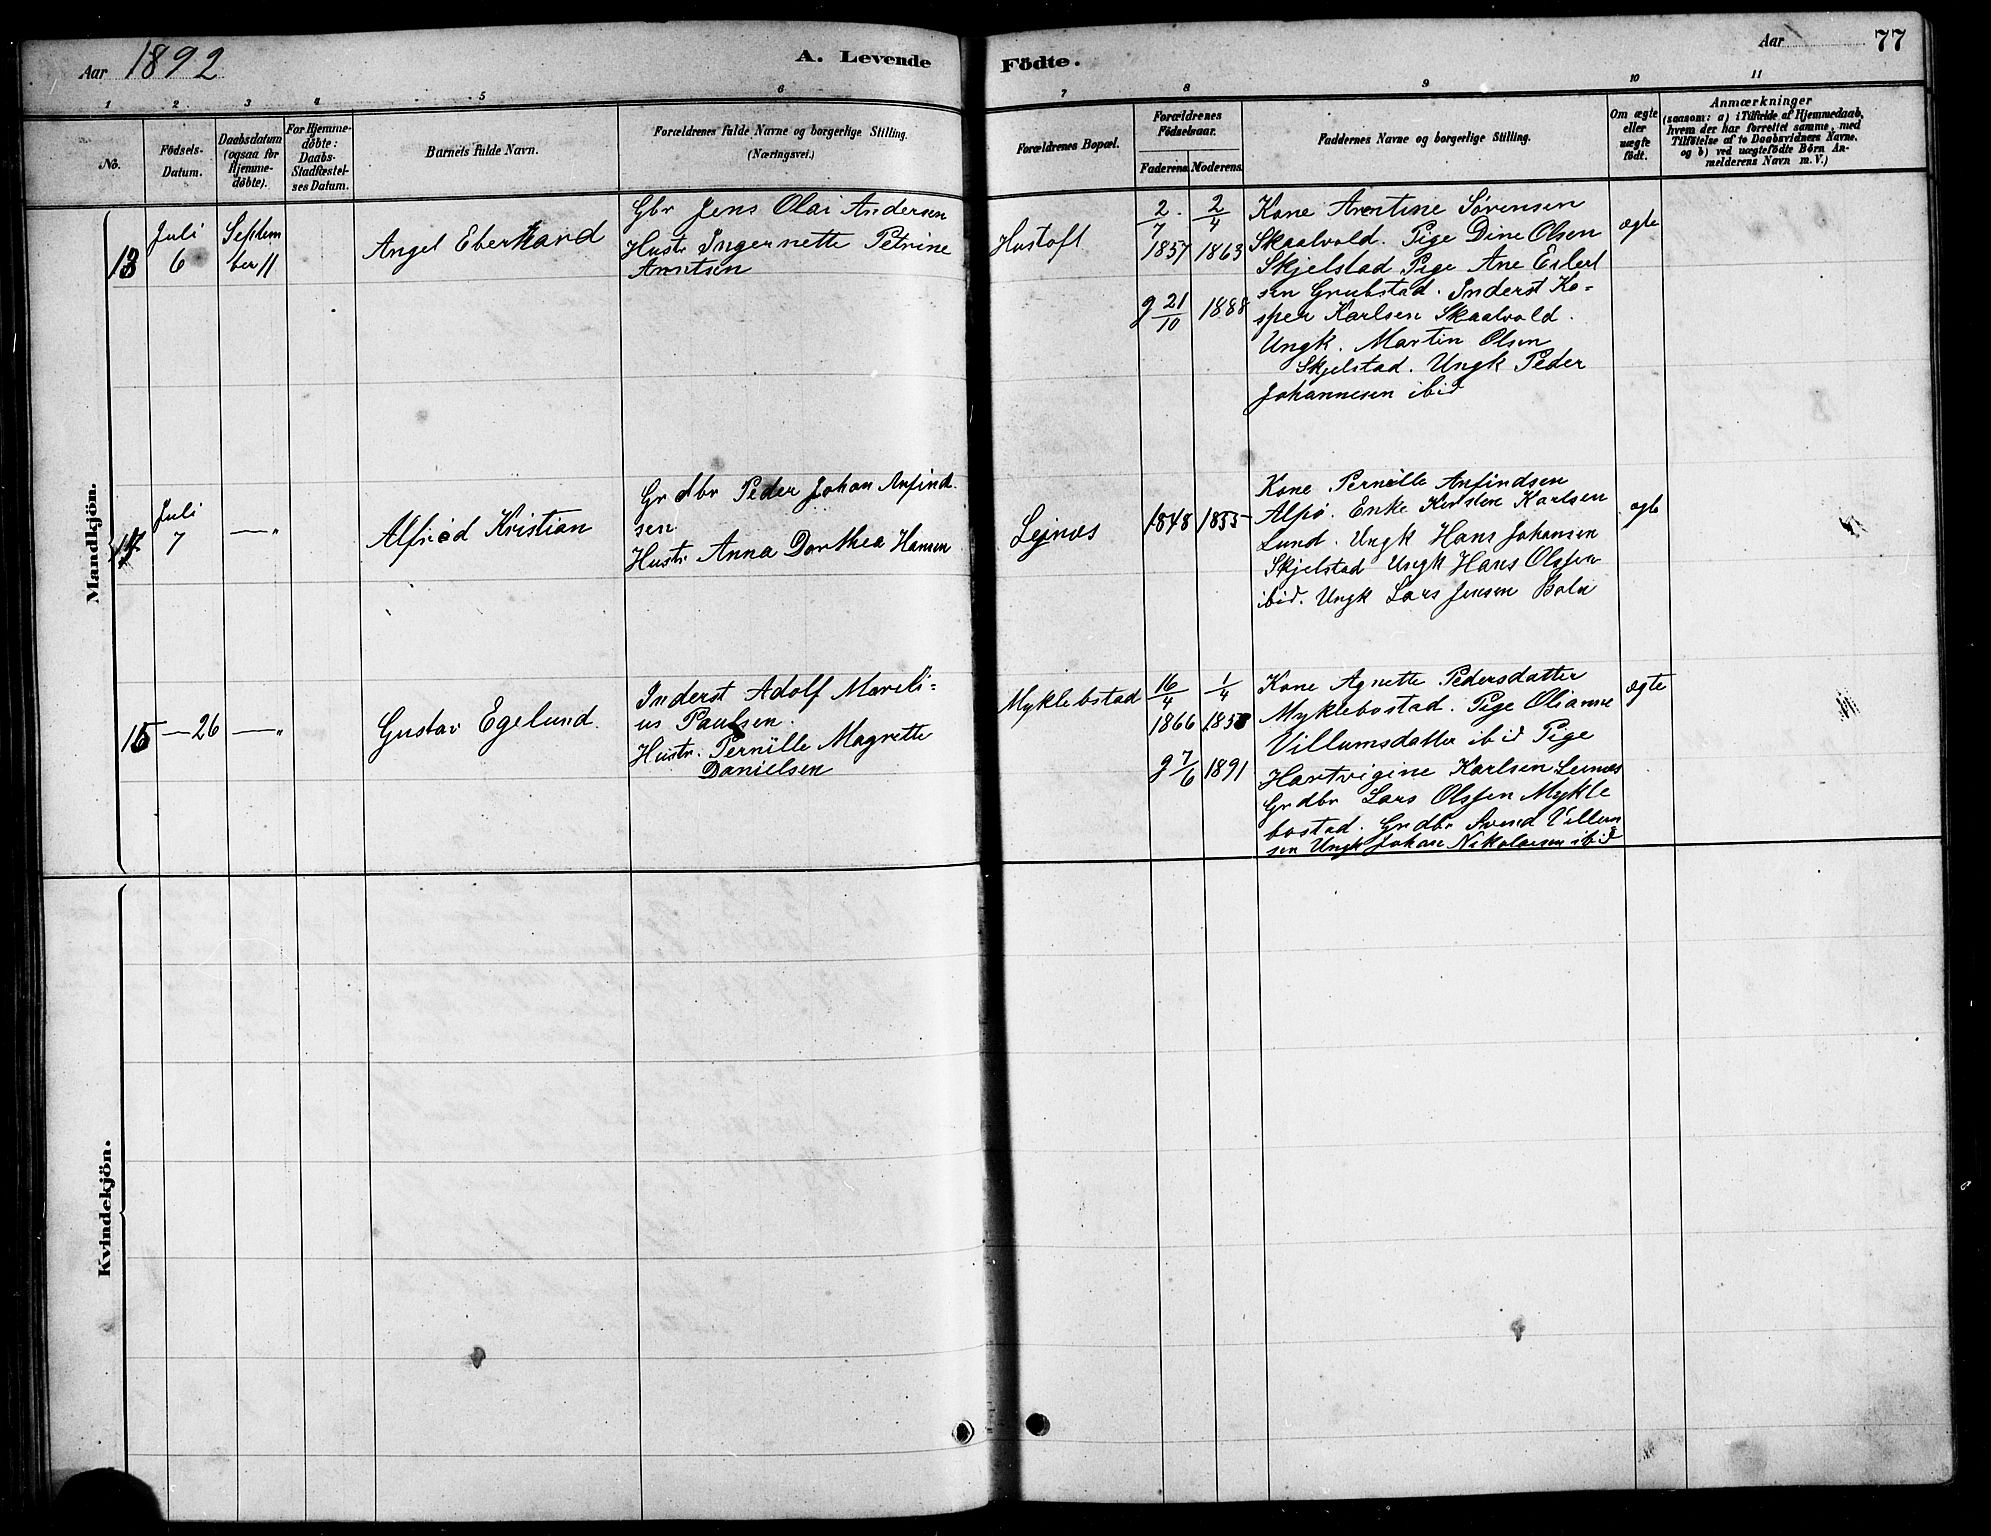 Aar 1892
A. Levende
Födte.
Aar
77
1 2 3 4 5 6 7 8 9 10 11
No.
Födsels-
Datum.
Daabsdatum
(ogsaa for
Hjemme-
döbte).
For Hjemme-
döbte:
Daabs-
Stadfæstel-
ses Datum.
Barnets fulde Navn.
Forældrenes fulde Navne og borgerlige Stilling.
(Næringsvei.)
Forældrenes Bopæl.
Forældrenes
Födselsaar.
Faderens. Moderens.
Faddernes Navne og borgerlige Stilling.
Om ægte
eller
uægte
födt.
Anmærkninger
(saasom: a) i Tilfælde af Hjemmedaab,
hvem der har forrettet samme, med
Tilföielse af to Daabsvidners Navne.
og b) ved uægtefödte Börn An-
melderens Navn m. V.)
Mandkjön.
13
Juli
6
Septem
ber 11
Angel Eberhard
Gbr Jens Olai Andersen
Hustr Ingernette Petrine
Arntsen
Hustoft
2/7 2/4
1857 1863
g 21/10 1888
Kone Arntine Sørensen
Skaalvold. Pige Dine Olsen
Skjelstad Pige Ane Eilert
sen Grubstad. Inderst Ka-
sper Karlsen Skaalvold.
Ungk. Martin Olsen
Skjelstad. Ungk Peder
Johannesen ibid
ægte
14
Juli
7
— "
Alfred Kristian
Grdbr Peder Johan Anfind
sen
Hustr Anna Dorthea Hansen
Lejnes
1848 1855
Kone Pernille Anfindsen
Alpø. Enke Kirsten Karlsen
Lund. Ungk Hans Johansen
Skjelstad Ungk Hans Olsen
ibid. Ungk Lars Jensen
ægte
15
— 26
— "
Gustav Egelund.
Inderst Adolf Mareli=
us Paulsen.
Hustr. Pernille Magrette
Danielsen
Myklebostad
16/4 1/4
1866 1858
g 7/6 1891
Kone Agnette Pedersdatter
Myklebostad. Pige Olianne
Villumsdatter ibid Pige
Hartvigine Karlsen Leines
Grdbr Lars Olsen Mykle
bostad. Grdbr Svend Villum
sen Ungk Johan Nikolaisen ibid
ægte
Kvindekjön.